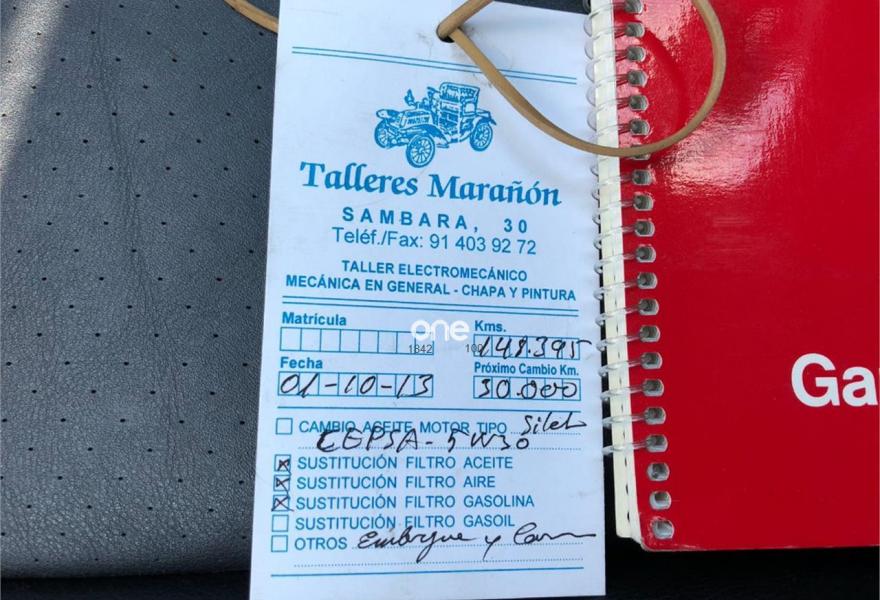 Talleres Marañón
SAMBARA, 30
Teléf./Fax: 91 403 92 72
TALLER ELECTROMECÁNICO
MECÁNICA EN GENERAL - CHAPA Y PINTURA
Matrícula
Kms.
148.395
one
1842
Fecha
Próximo Cambio Km.
01-10-13
30.000
CAMBIO ACEITE MOTOR TIPO
CEPSA - 5W30
SUSTITUCIÓN FILTRO ACEITE
SUSTITUCIÓN FILTRO AIRE
SUSTITUCIÓN FILTRO GASOLINA
SUSTITUCIÓN FILTRO GASOIL
OTROS Embrague y
Ga